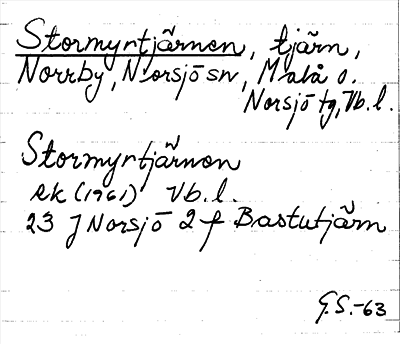 Stormyrtjärnen, tjärn,
Norrby, Norsjö sn, Malå o.
Norsjö tg, Vb. l.
Stormyrtjärnen
ek (1961) Vb. l.
23 J Norsjö 2 f Bastutjärn
G.S.-63